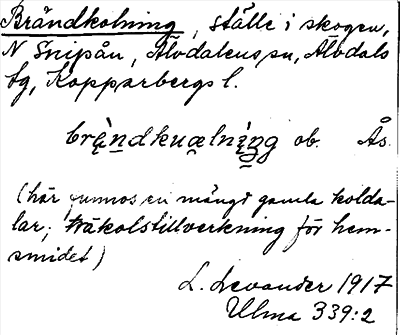 Brändkolning, ställe i skogen,
N Snipån, Älvdalens sn, Älvdals
tg, Kopparbergs l.
brä̀ndkuælnı̀ŋg ob. Ås.
(här funnos en mängd gamla kolda-
lar; träkolstillverkning för hem-
smidet)
L. Levander 1917
Ulma 339:2